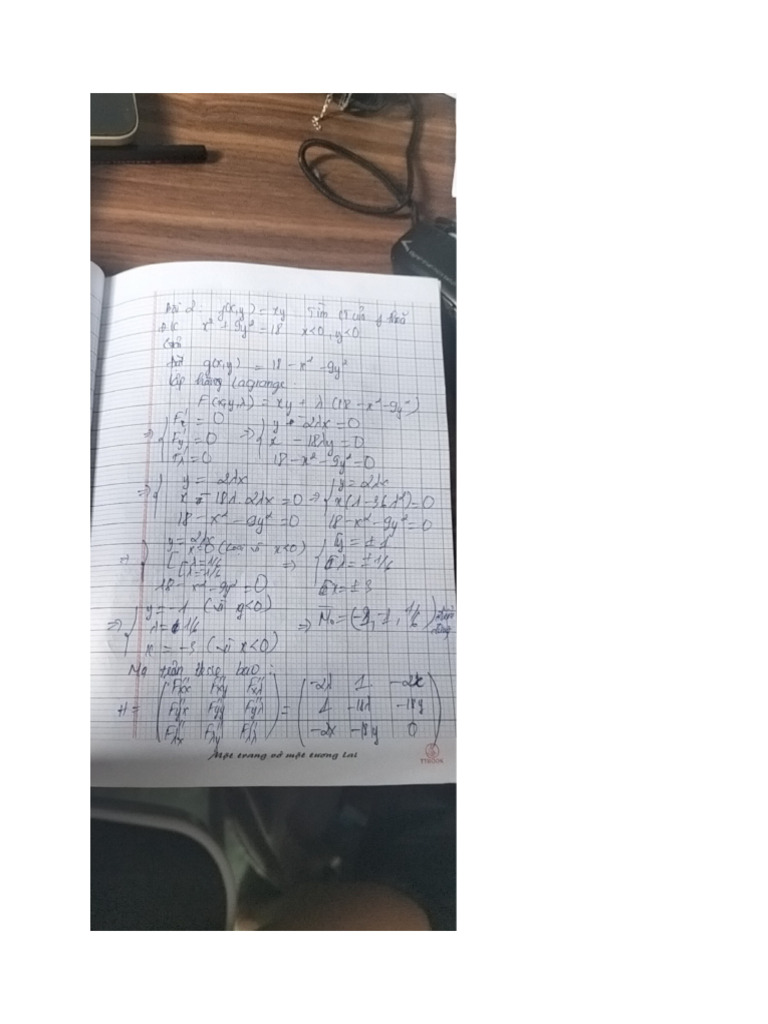 Bài 2: f(x,y) = xy Tìm cực trị của f thoả
đ.k x² + 9y² = 18 x<0, y<0
Giải
Đặt g(x,y) = 18 - x² - 9y²
Lập hàng Lagrange:
F(x,y,λ) = xy + λ(18 - x² - 9y²)
=> { F'x = 0 F'y = 0 F'λ = 0 => { y - 2λx = 0 x - 18λy = 0 18 - x² - 9y² = 0
=> { y = 2λx x - 18λ.2λx = 0 18 - x² - 9y² = 0 => { y = 2λx x(1 - 36λ²) = 0 18 - x² - 9y² = 0
=> { y = 2λx [ x = 0 (loại vì x<0) λ = 1/6 λ = -1/6 18 - x² - 9y² = 0 => { y = ±1 λ = ±1/6 x = ±3
=> { y = -1 (vì y<0) λ = 1/6 x = -3 (vì x<0) => M₀ = (-3, -1, 1/6)
Ma trận bao:
H = ( F''xx F''xy F''xλ F''yx F''yy F''yλ F''λx F''λy F''λλ ) = ( -2λ 1 -2x 1 -18λ -18y -2x -18y 0 )
Một trang vở một tương lai
TTBOOK